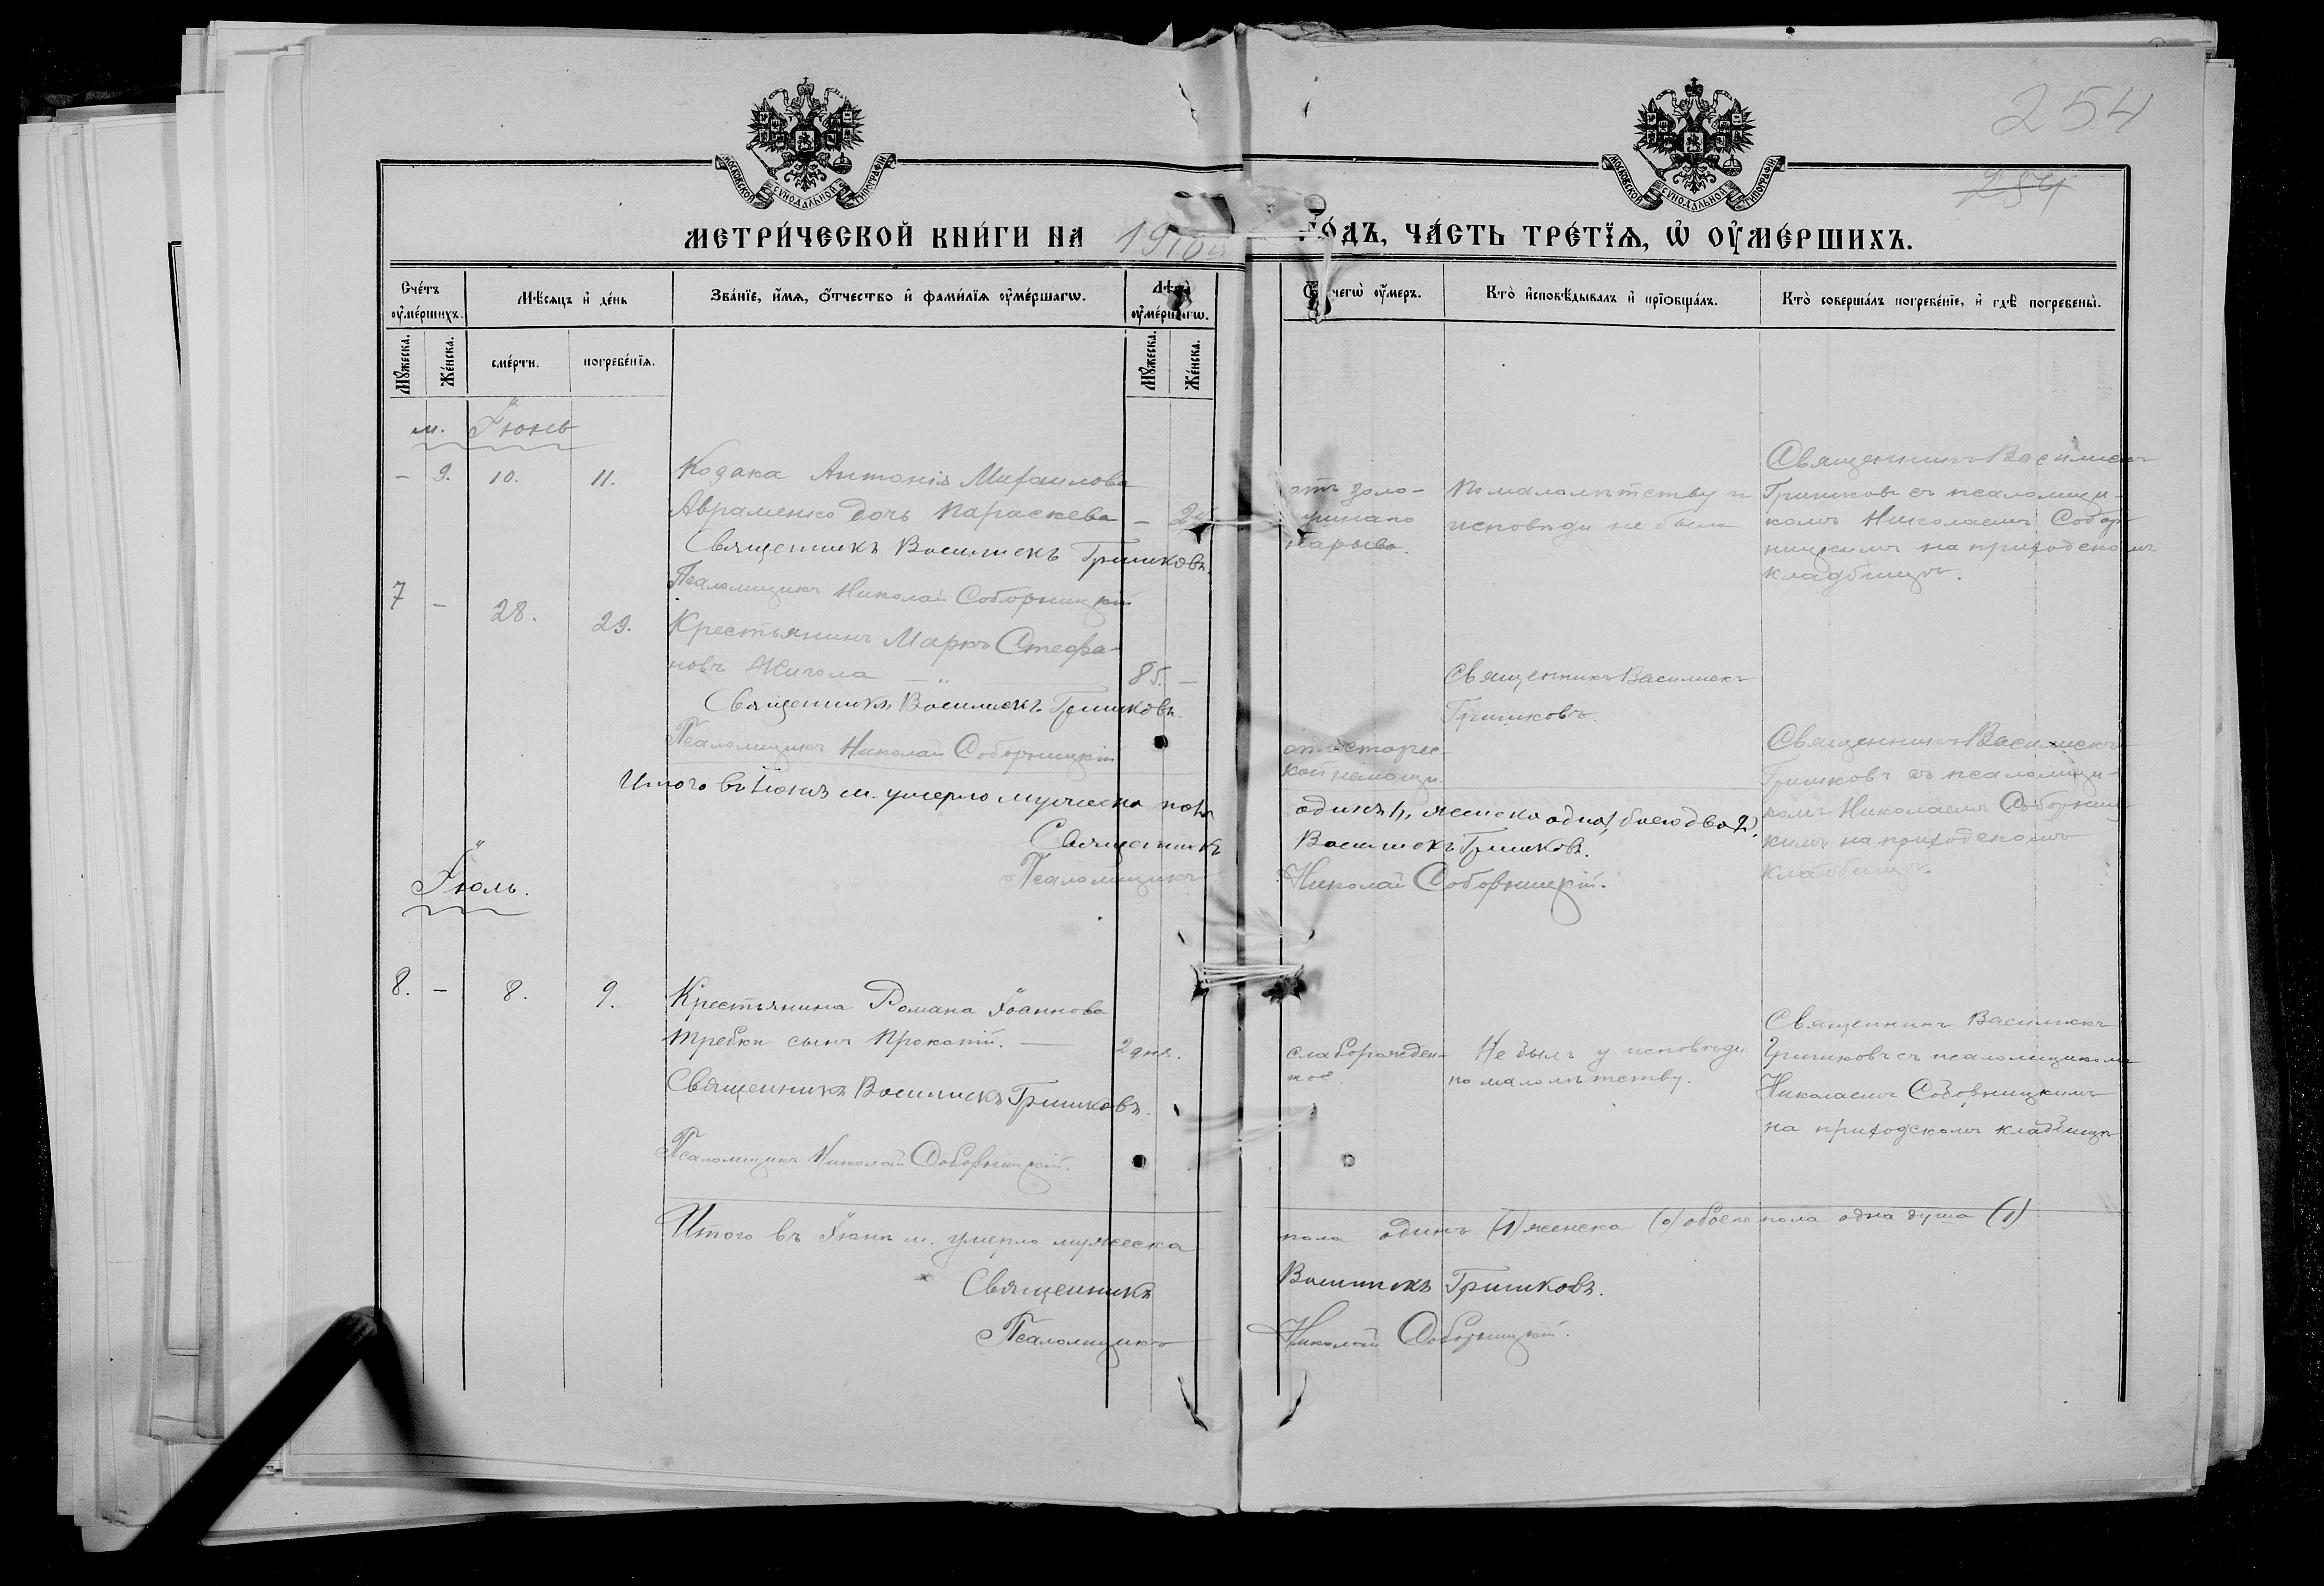 254
254
МОСКОВСКОЙ СѴНОДАЛЬНОЙ ТИПОГРАФІИ
МОСКОВСКОЙ СѴНОДАЛЬНОЙ ТИПОГРАФІИ
МЕТРИ́ЧЕСКОЙ КНИ́ГИ НА 1910й ГО́ДЪ, ЧА́СТЬ ТРЕ́ТЇѦ, Ѡ҆ ОУ҆МЕ́РШИХЪ.
Сче́тъ оу҆ме́ршихъ.
Мѣ́сяцъ и҆ де́нь
Зва́нїе, и҆́мя, ѻ҆́тчество и҆ фами́лїя оу҆ме́ршагѡ.
Лѣ́та оу҆ме́ршагѡ.
чегѡ̀ оу҆́меръ.
Кто̀ и҆сповѣ́дывалъ и҆ прїѡбща́лъ.
Кто̀ соверша́лъ погребе́нїе, и҆ гдѣ̀ погребены̀.
Мꙋ́жеска.
Же́нска.
сме́рти.
погребе́нїя.
Мꙋ́жеска.
Же́нска.
м. Іюнь
– 9. 10. 11.
Козака Антонія Михаилова
Авраменко дочь Параскева –
Священникъ Василискъ Гришковъ.
Псаломщикъ Николай Соборницкій
отъ золо-
нарыва.
По малолѣтству у
исповѣди не была
Священникъ Василискъ
Гришковъ съ псаломщи-
комъ Николаемъ Собор-
ницкимъ на приходскомъ
кладбищѣ.
7 – 28. 29.
Крестьянинъ Маркъ Стефа-
новъ Жигола — 85. –
Священникъ Василискъ Гришковъ.
Псаломщикъ Николай Соборницкій
отъ старчес-
кой немощи
Священникъ Василискъ
Гришковъ.
Священникъ Василискъ
Гришковъ съ псаломщи-
комъ Николаемъ Соборниц-
кимъ на приходскомъ
кладбищѣ.
Итого въ Іюнѣ м. умерло мужеска пола
одинъ 1, женска одна 1, обоего два 2.
Священникъ Василискъ Гришковъ.
Псаломщикъ Николай Соборницкій.
Іюль.
8. – 8. 9.
Крестьянина Романа Іоаннова
Требки сынъ Прокопій. — 2 дня.
Священникъ Василискъ Гришковъ.
Псаломщикъ Николай Соборницкій.
слаборожден-
ное.
Не былъ у исповѣди
по малолѣтству.
Священникъ Василискъ
Гришковъ съ псаломщикомъ
Николаемъ Соборницкимъ
на приходскомъ кладбищѣ
Итого въ Іюлѣ м. умерло мужеска
пола одинъ (1) женска (0) обоего пола одна душа (1)
Священникъ Василискъ Гришковъ.
Псаломщикъ Николай Соборницкій.